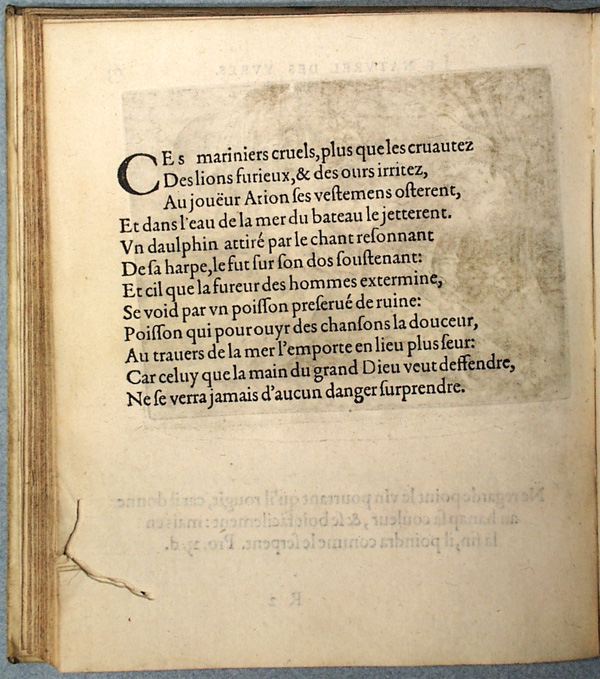 CEs mariniers cruels, plus que les cruautez
Des lions furieux, & des ours irritez,
Au jouëur Arion ſes veſtemens oſterent,
Et dans l'eau de la mer du bateau le jetterent.
Vn daulphin attiré par le chant reſonnant
De ſa harpe, le fut ſur ſon dos ſouſtenant:
Et cil que la fureur des hommes extermine,
Se void par vn poiſſon preſerué de ruine:
Poiſſon qui pour ouyr des chanſons la douceur,
Au trauers de la mer l'emporte en lieu plus ſeur:
Car celuy que la main du grand Dieu veut deffendre,
Ne ſe verra jamais d'aucun danger ſurprendre.